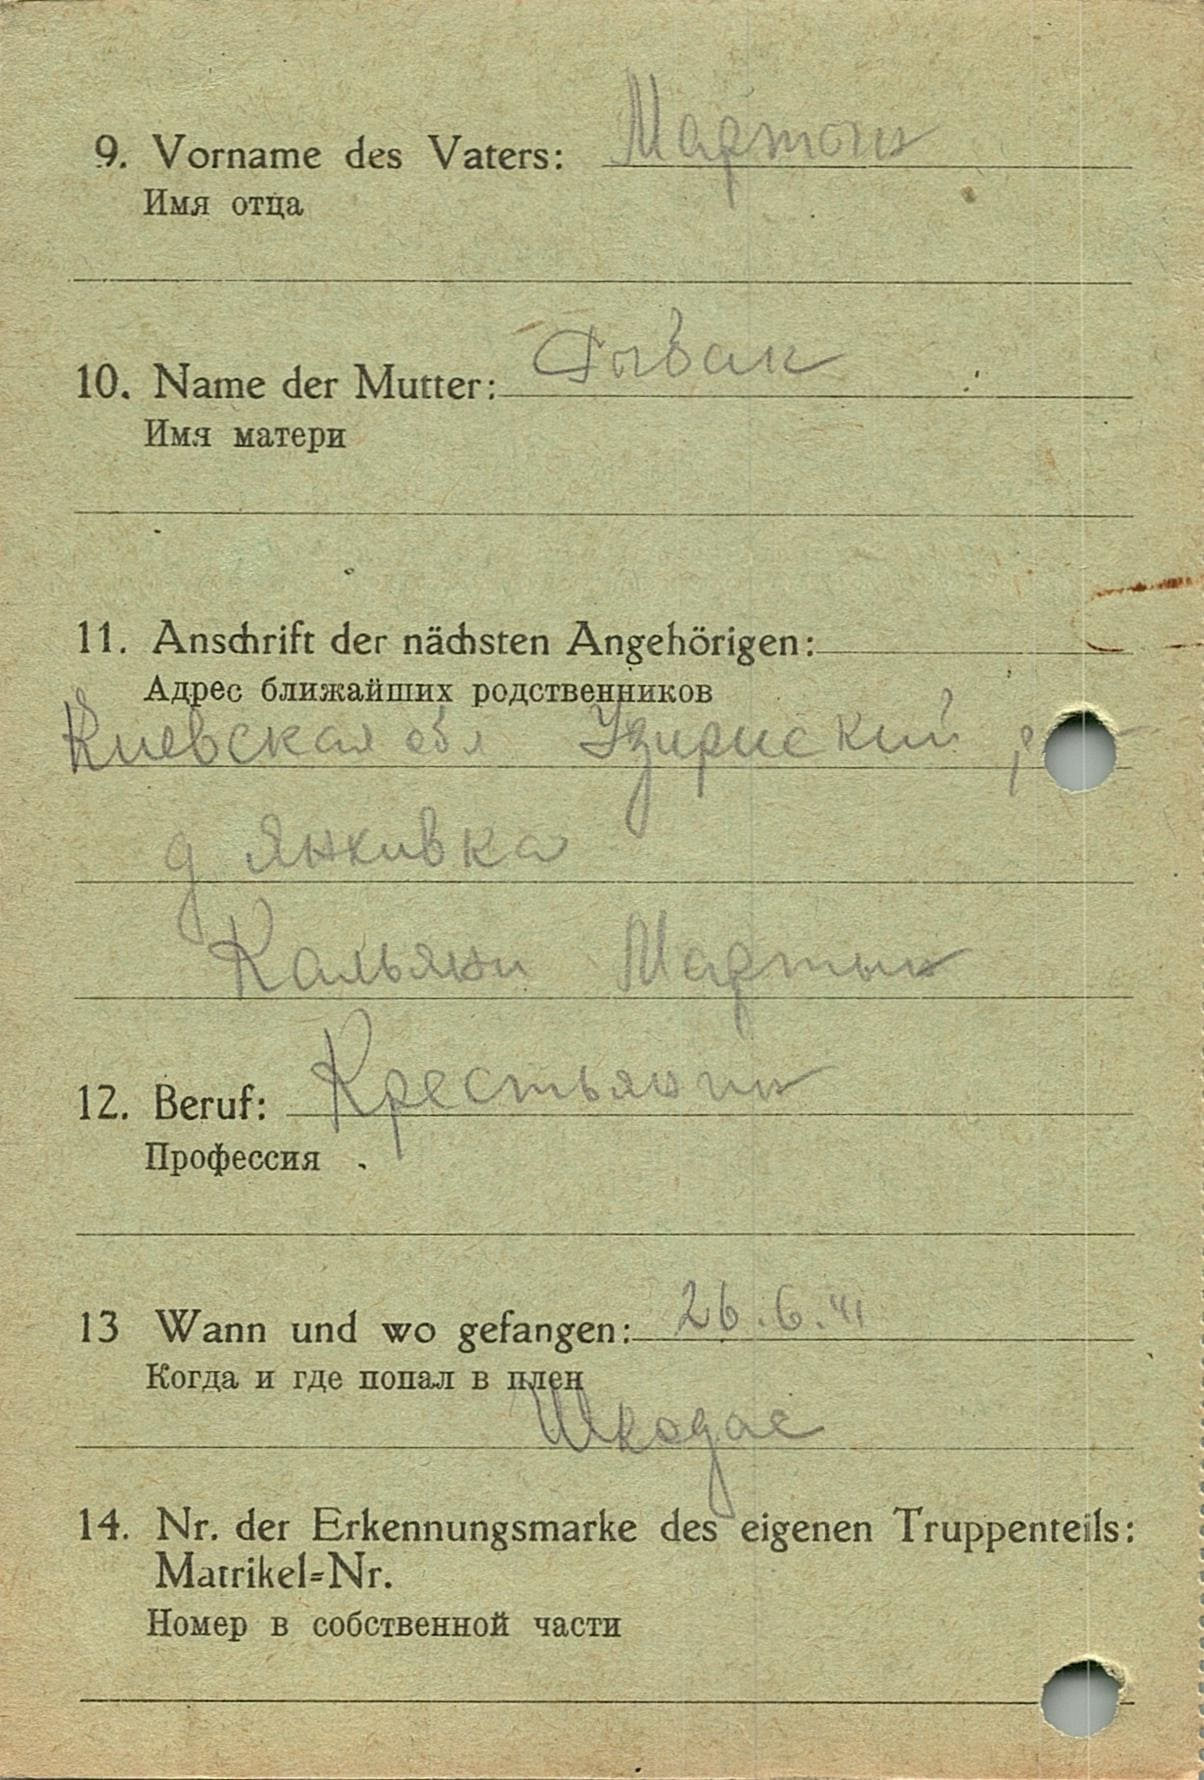 9. Vorname des Vaters: Мартын
Имя отца
10. Name der Mutter: Рыбак
Имя матери
11. Anschrift der nächsten Angehörigen:
Адрес ближайших родственников
Киевская обл Узинский р
д Янкивка
Мартын
12. Beruf: Крестьянин
Профессия
13 Wann und wo gefangen: 26.6.41
Когда и где попал в плен
Шкодас
14. Nr. der Erkennungsmarke des eigenen Truppenteils:
Matrikel=Nr.
Номер в собственной части